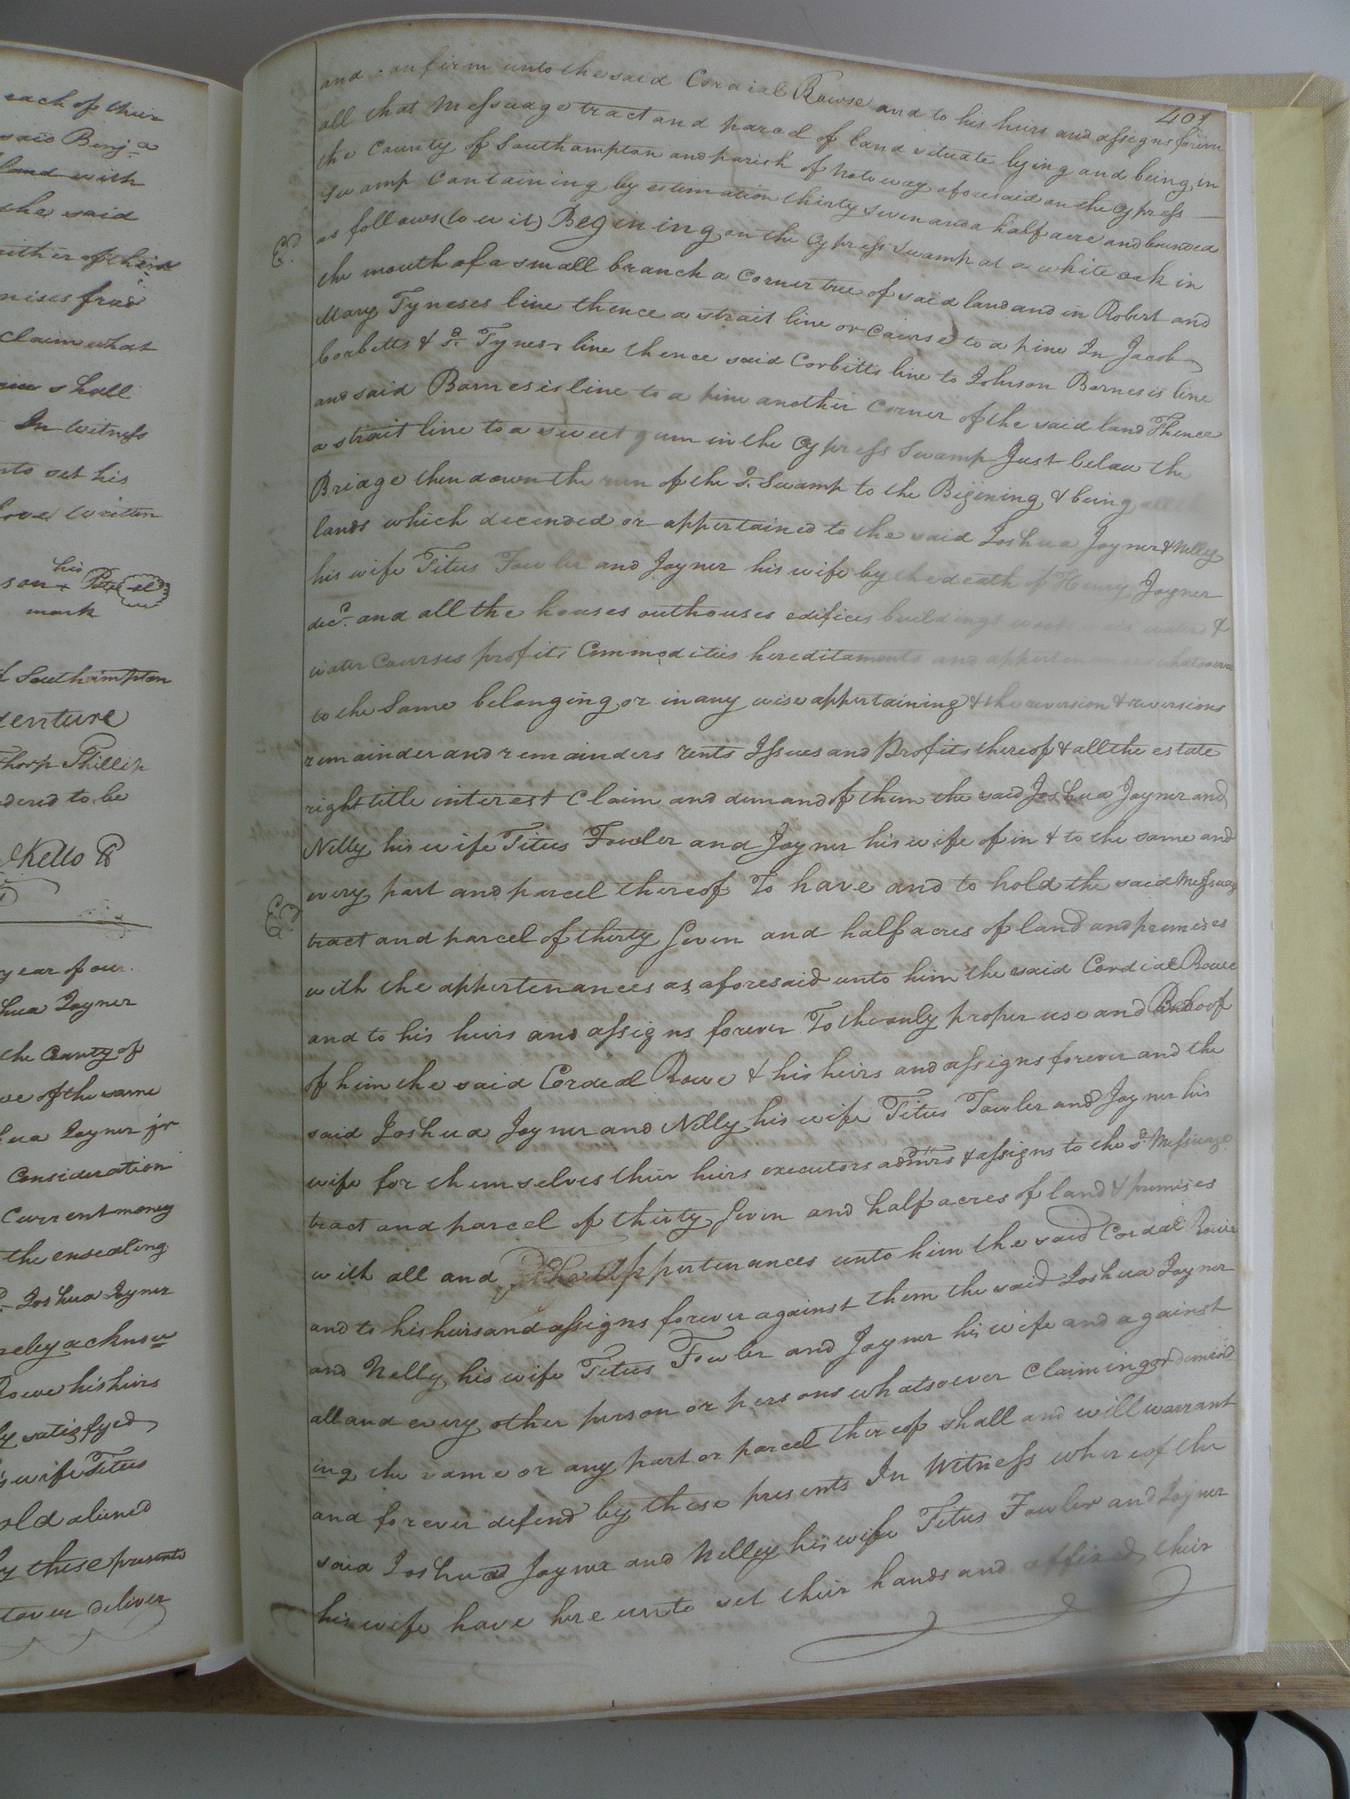 each of their
said Benj.a
land with
the said
either of their
mises from
claim what
shall
In Witness
nto set his
above written
his
son + Pete
mark
of Southampton
denture
Thorp Phillip
dered to be
Kello
year of our
hua Joyner
the County of
of the same
hua Joyner jr
Consideration
Current money
the ensealing
Joshua Joyner
reby acknow
Rowe his heirs
ly satisfyed
s wife Titus
old aliened
by these presents
deliver
401
and confirm unto the said Cordial Rowse and to his heirs and assigns forever
all that Messuage tract and parcel of land situate lying and being in
the County of Southampton and parish of Notoway aforesaid on the Cypress
Swamp Containing by estimation thirty seven and a half acre and bounded
as follows (to wit) Begining on the Cypress Swamp at a white oak in
the mouth of a small branch a Corner tree of said land and in Robert and
Mary Tyneses line thence a strait line or Cource to a pine In Jacob
Corbetts & Sd. Tynes line thence said Corbitts line to Johnson Barneses line
and said Barneses line to a pine another Corner of the said land Thence
a strait line to a sweet gum in the Cypress Swamp Just below the
Bridge then down the run of the Sd. Swamp to the Begining & being all the
lands which decended or appertained to the said Joshua Joyner & Nelly
his wife Titus Fowler and Joyner his wife by the death of Henry Joyner
decd. and all the houses outhouses edifices buildings water &
water Courses profits Commodities hereditaments and appertenances whatsoever
to the Same belonging or in any wise appertaining & the reversion & reversions
remainder and remainders rents Issues and Profits thereof & all the estate
right title interest Claim and demand of them the said Joshua Joyner and
Nelly his wife Titus Fowler and Joyner his wife of in & to the same and
every part and parcel thereof To have and to hold the said Messuage
tract and parcel of thirty Seven and half acres of land and premises
with the appertenances as aforesaid unto him the said Cordial Rowe
and to his heirs and assigns forever To the only proper use and Behoof
of him the said Cordeal Rowe & his heirs and assigns forever and the
said Joshua Joyner and Nelly his wife Titus Fowler and Joyner his
wife for themselves their heirs executors admrs & assigns to the sd. Messuage
tract and parcel of thirty Seven and half acres of land & premises
with all and appertenances unto him the said Cordal Rowe
and to his heirs and assigns forever against them the said Joshua Joyner
and Nelly his wife Titus Fowler and Joyner his wife and against
all and every other person or persons whatsoever Claiming or demand
ing the same or any part or parcel thereof shall and will warrant
and forever defend by these presents In Witness whereof the
said Joshua Joyner and Nelley his wife Titus Fowler and Joyner
his wife have here unto set their hands and affixed their